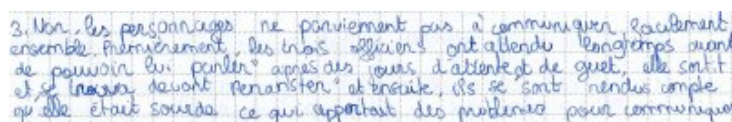 3. Non, les personnages ne parviennent pas à communiquer facilement
ensemble. Premièrement, les trois officiers ont attendu longtemps avant
de pouvoir lui parler "après des jours d'attente et de guet, elle sortit
et se trouva devant Penanster" et ensuite, ils se sont rendus compte
qu'elle était sourde ce qui apportait des problèmes pour communiquer